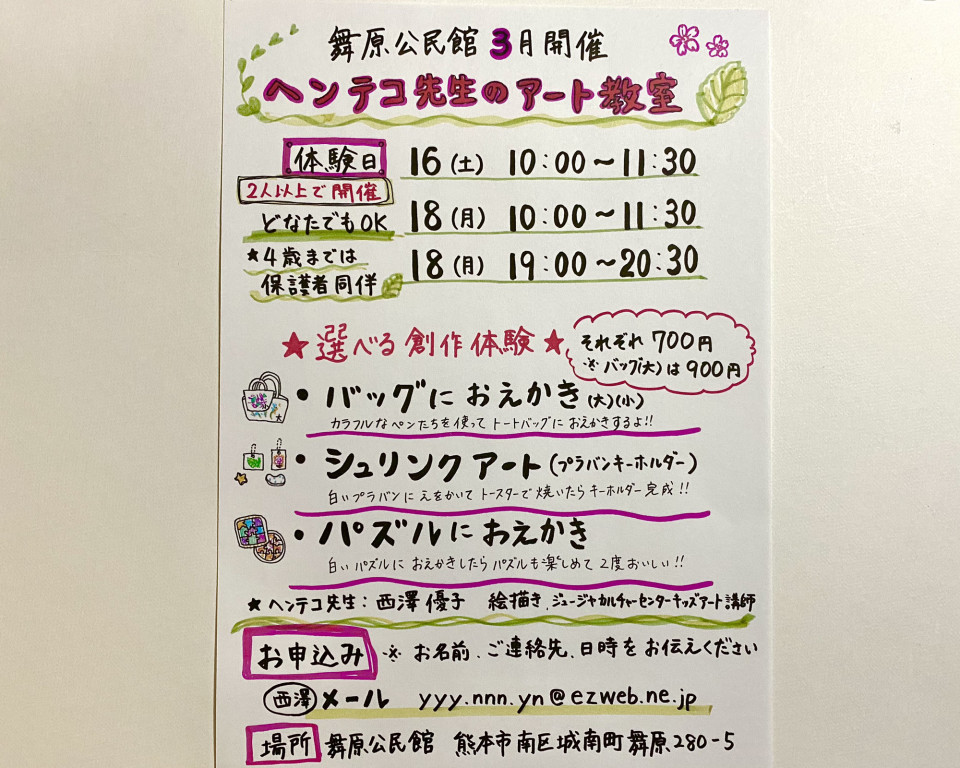 舞原公民館 3月開催
ヘンテコ先生のアート教室
体験日 16(土) 10:00〜11:30
2人以上で開催
どなたでもOK 18(月) 10:00〜11:30
★4歳までは
保護者同伴 18(月) 19:00〜20:30
★選べる創作体験★
それぞれ700円
※バッグ(大)は900円
・バッグにおえかき(大)(小)
カラフルなペンたちを使ってトートバッグにおえかきするよ!!
・シュリンクアート(プラバンキーホルダー)
白いプラバンにえをかいてトースターで焼いたらキーホルダー完成!!
・パズルにおえかき
白いパズルにおえかきしたらパズルも楽しめて2度おいしい!!
★ヘンテコ先生:西澤優子 絵描き、ジュージヤカルチャーセンターキッズアート講師
お申込み ※お名前、ご連絡先、日時をお伝えください
西澤 メール yyy.nnn.yn@ezweb.ne.jp
場所 舞原公民館 熊本市南区城南町舞原280-5